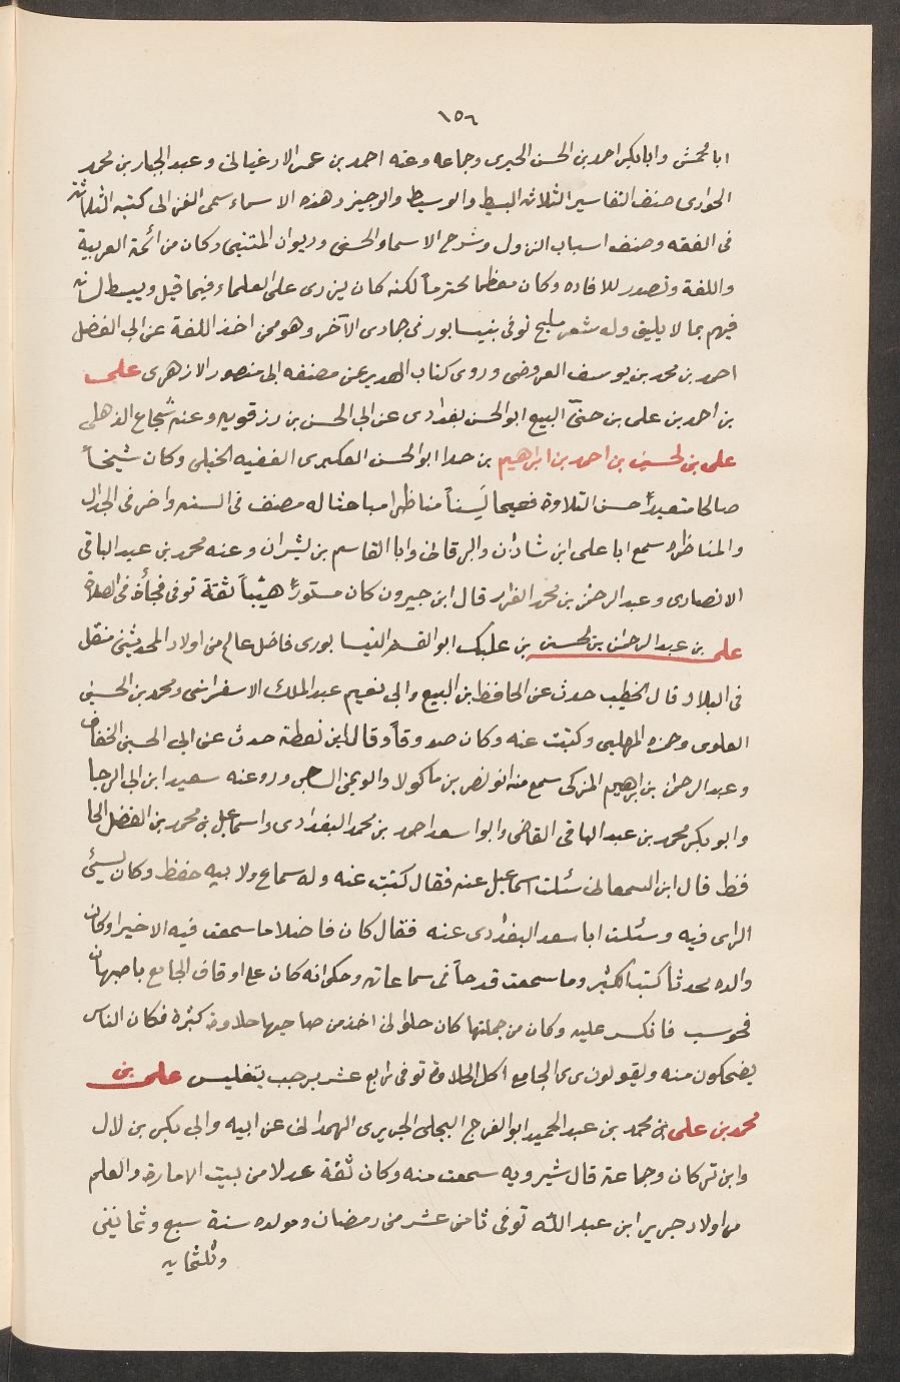 ١٥٦
ابا محمش وابا بكر احمد بن الحسن الحيرى وجماعه وعنه احمد بن عمر الارغيانى وعبد الجبار بن محمد
الخوارى صنف التفاسير الثلاثه البسيط والوسيط والوجيز وهذه الاسماء سمى الغزالى كتبه الثلاثة
فى الفقه وصنف اسباب النزول وشرح الاسما والحسنى وديوان المتنبى وكان من ائمة العربية
واللغة وتصدر للافاده وكان معظما محترماً لكنه كان يزرى على العلماء فيما قيل ويبسط لسانه
فيهم بما لا يليق وله شعر مليح توفى بنيسابور فى جمادى الآخر وهو ممن اخذ اللغة عن ابى الفضل
احمد بن محمد بن يوسف العروضى وروى كتاب التهذيب عن مصنفه ابى منصور الازهرى على
بن احمد بن على بن حنى البيع ابو الحسن بغدادى عن ابى الحسن بن رزقويه وعنه شجاع الذهلى
على بن الحسين بن احمد بن ابراهيم بن جدا ابو الحسن العكبرى الفقيه الحنبلى وكان شيخاً
صالحا متعبداً حسن التلاوة فصيحا لَسِناً مناظرا مباحثا له مصنف فى السنه واخر فى الجدال
والمناظره سمع ابا على ابن شاذان والبرقانى وابا القاسم بن بشران وعنه محمد بن عبد الباقى
الانصارى وعبد الرحمن بن محمد القزاز قال ابن خيرون كان مستوراً هيّباً ثقة توفى فجأة فى الصلاة
على بن عبد الرحمن بن الحسن بن عليك ابو القسم النيسابورى فاضل عالم من اولاد المحدثين منتقل
فى البلاد قال الخطيب حدث عن الحافظ بن البيع وابى نعيم عبد الملك الاسفراينى ومحمد بن الحسين
العلوى وحمزه المهلبى وكتبت عنه وكان صدوقاً وقال ابن نقطة حدث عن ابى الحسين الخفاف
وعبد الرحمن بن ابرهيم المزكى سمع منه ابو نصر بن ماكولا وروعنه سعيد ابن ابى الرجا
وابو بكر محمد بن عبد الباقى القاضى وابو اسعد احمد بن محمد البغدادى واسماعيل بن محمد بن الفضل الحا
فظ قال ابن السمعانى سئلت اسماعيل عنه فقال كتبت عنه وله سماع ولابيه حفظ وكان يسئ
الراى فيه وسئلت ابا سعد البغدادى عنه فقال كان فاضلا ما سمعت فيه الا خيرا وكان
والده محدثا كتبا الكثير وما سمعت قدحاً فى سماعاته وحكى انه كان على اوقاف الجامع باصبهان
فحوسب فانكسر عليه وكان من جملتها كان حلوانى اخذ من صاحبها حلاوة كثيرة فكان الناس
يضحكون منه ويقولون يرى الجامع اكل الحلاوة توفى رابع عشر برجب بتفليس على بن
محمد بن على بن محمد بن عبد الحميد ابو الفرج البجلى الجريرى الهمدانى عن ابيه وابى بكر بن لال
وابن تركان وجماعة قال شيرويه سمعت منه وكان ثقة عدلا من بيت الامارة والعلم
من اولاد جرير ابن عبد الله توفى ثامن عشر من رمضان ومولده سنة سبع وثمانين
وثلثمايه